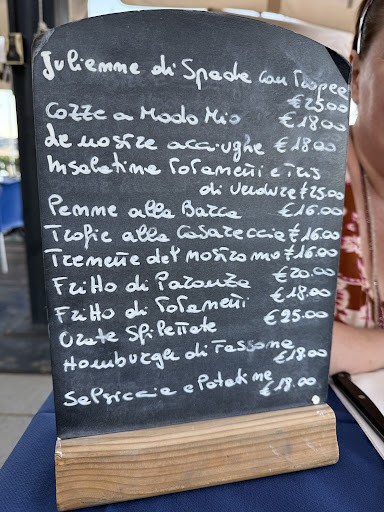 Juliemme di Spada con Tropee
€25.00
Cozze a Modo Mio €18.00
Le nostre acciughe €18.00
Insalatima Totameni e tris
di verdure €25.00
Pemme alla Barca €16.00
Trofie alla Casareccia €16.00
Tremette del nostromo €16.00
Fritto di Paranza €20.00
Fritto di Totameni €18.00
Orate Sfilettate €25.00
Hamburger di Fassoma €18.00
Salsiccia e Patatime €18.00